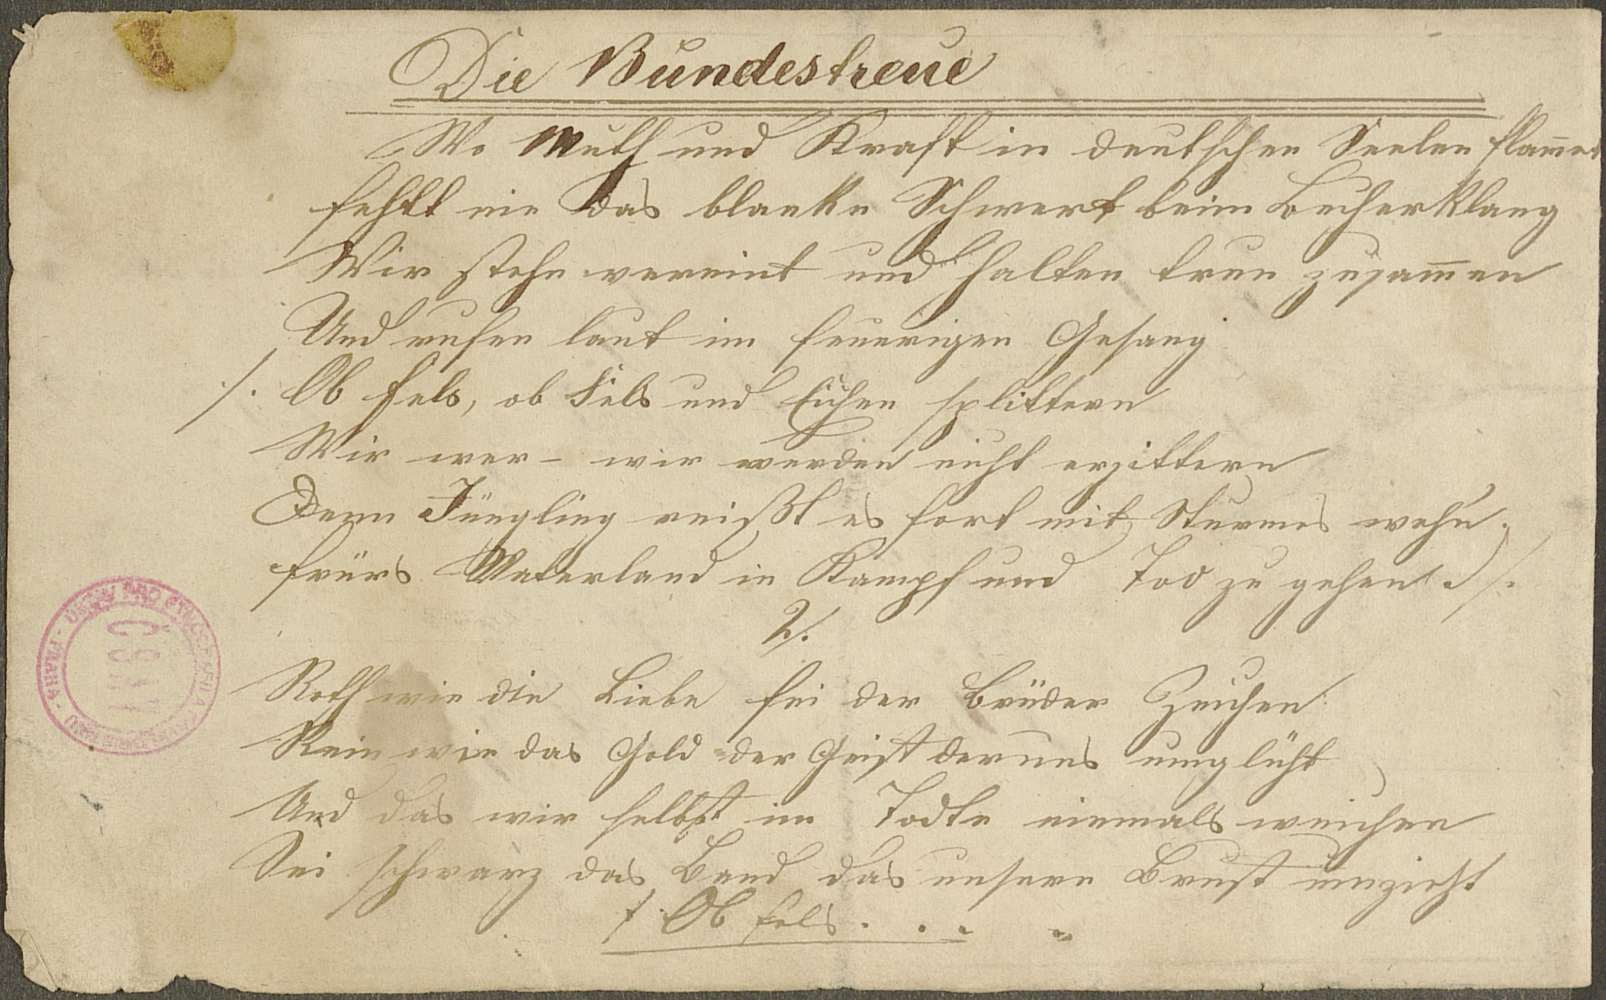 Die Bundestreue
Wo Muth und Kraft in deutschen Seelen flam̄et
fehlt nie das blanke Schwert beim Becherklang
Wir stehn vereint und halten treu zusam̄en
Und rufen laut im feuerigen Gesang
./. Ob Fels, ob Fels und Eichen splittern
Wir wer- wir werden nicht erzittern
Denn Jüngling reißt es fort mit Sturmes wehn.
fürs Vaterland in Kampf und Tod zu gehen ./.
2/.
Roth wie die Liebe sei der Brüder Zeichen
Rein wie das Gold der Geist der uns umglüht
Und das wir selbst im Todte niemals weichen
Sei schwarz das Band das unsere Brust umzieht
/. Ob Fels . . .
ČSAV
PRAHA